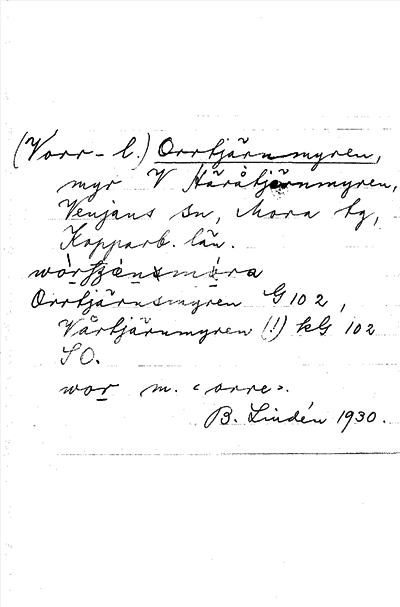 (Vorr- l.) Orrtjärnmyren,
myr V Håråtjärnmyren,
Venjans sn, Mora tg,
Kopparb. län.
Orrtjärnsmyren G 102,
Vårtjärnmyren (!) kG 102
SO.
wor m. ‹orre›.
B. Lindén 1930.